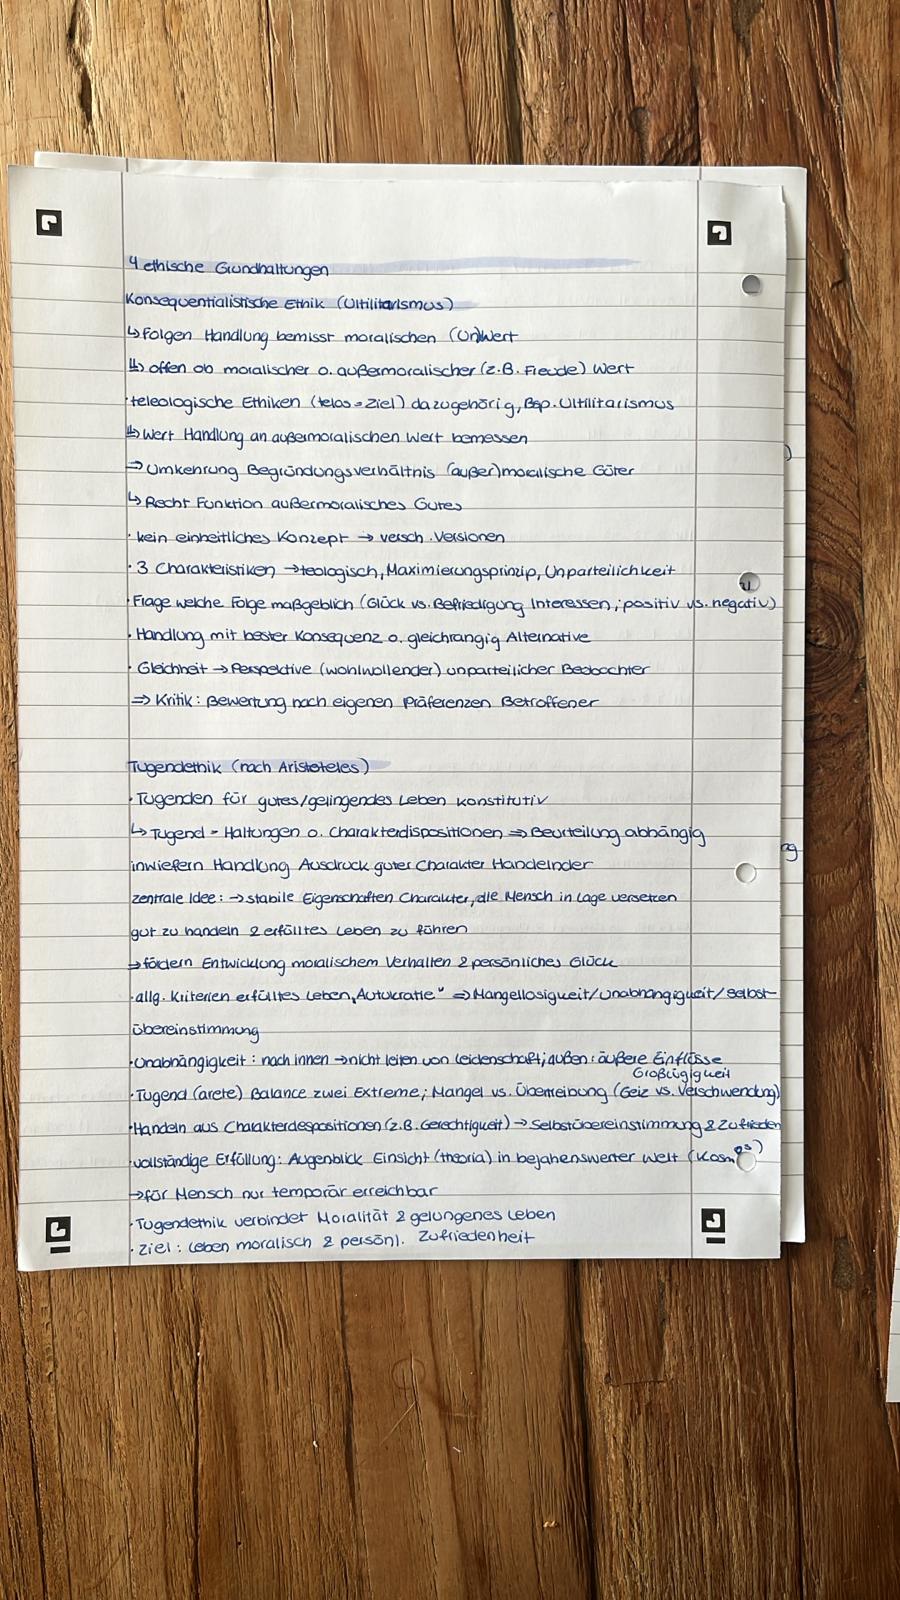 4 ethische Grundhaltungen
Konsequentialistische Ethik (Ultilitarismus)
↳ Folgen Handlung bemisst moralischen (Un)Wert
↳ offen ob moralischer o. außermoralischer (z.B. Freude) Wert
· teleologische Ethiken (telos = Ziel) dazugehörig, Bsp. Ultilitarismus
↳ Wert Handlung an außermoralischen Wert bemessen
⇒ Umkehrung Begründungsverhältnis (außer)moralische Güter
↳ Recht Funktion außermoralisches Gutes
· kein einheitliches Konzept → versch. Versionen
· 3 Charakteristiken → teologisch, Maximierungsprinzip, Unparteilichkeit
· Frage welche Folge maßgeblich (Glück vs. Befriedigung Interessen; positiv vs. negativ)
· Handlung mit bester Konsequenz o. gleichrangig Alternative
· Gleichheit → Perspektive (wohlwollender) unparteilicher Beobachter
⇒ Kritik: Bewertung nach eigenen Präferenzen Betroffener
Tugendethik (nach Aristoteles)
· Tugenden für gutes/gelingendes Leben konstitutiv
↳ Tugend = Haltungen o. Charakterdispositionen ⇒ Beurteilung abhängig
inwiefern Handlung Ausdruck guter Charakter Handelnder
zentrale Idee: → stabile Eigenschaften Charakter, die Mensch in Lage versetzen
gut zu handeln & erfülltes Leben zu führen
⇒ fördern Entwicklung moralischem Verhalten & persönliches Glück
· allg. Kriterien erfülltes Leben „Autokratie" ⇒ Mangellosigkeit/Unabhängigkeit/Selbst-
übereinstimmung
· Unabhängigkeit: nach innen → nicht leiten von Leidenschaft; außen: äußere Einflüsse
Großzügigkeit
· Tugend (arete) Balance zwei Extreme; Mangel vs. Übertreibung (Geiz vs. Verschwendung)
· Handeln aus Charakterdespositionen (z.B. Gerechtigkeit) → Selbstübereinstimmung & Zufrieden
· vollständige Erfüllung: Augenblick Einsicht (theoria) in bejahenswerter Welt (Kosmos)
→ für Mensch nur temporär erreichbar
· Tugendethik verbindet Moralität & gelungenes Leben
· Ziel: Leben moralisch & persönl. Zufriedenheit